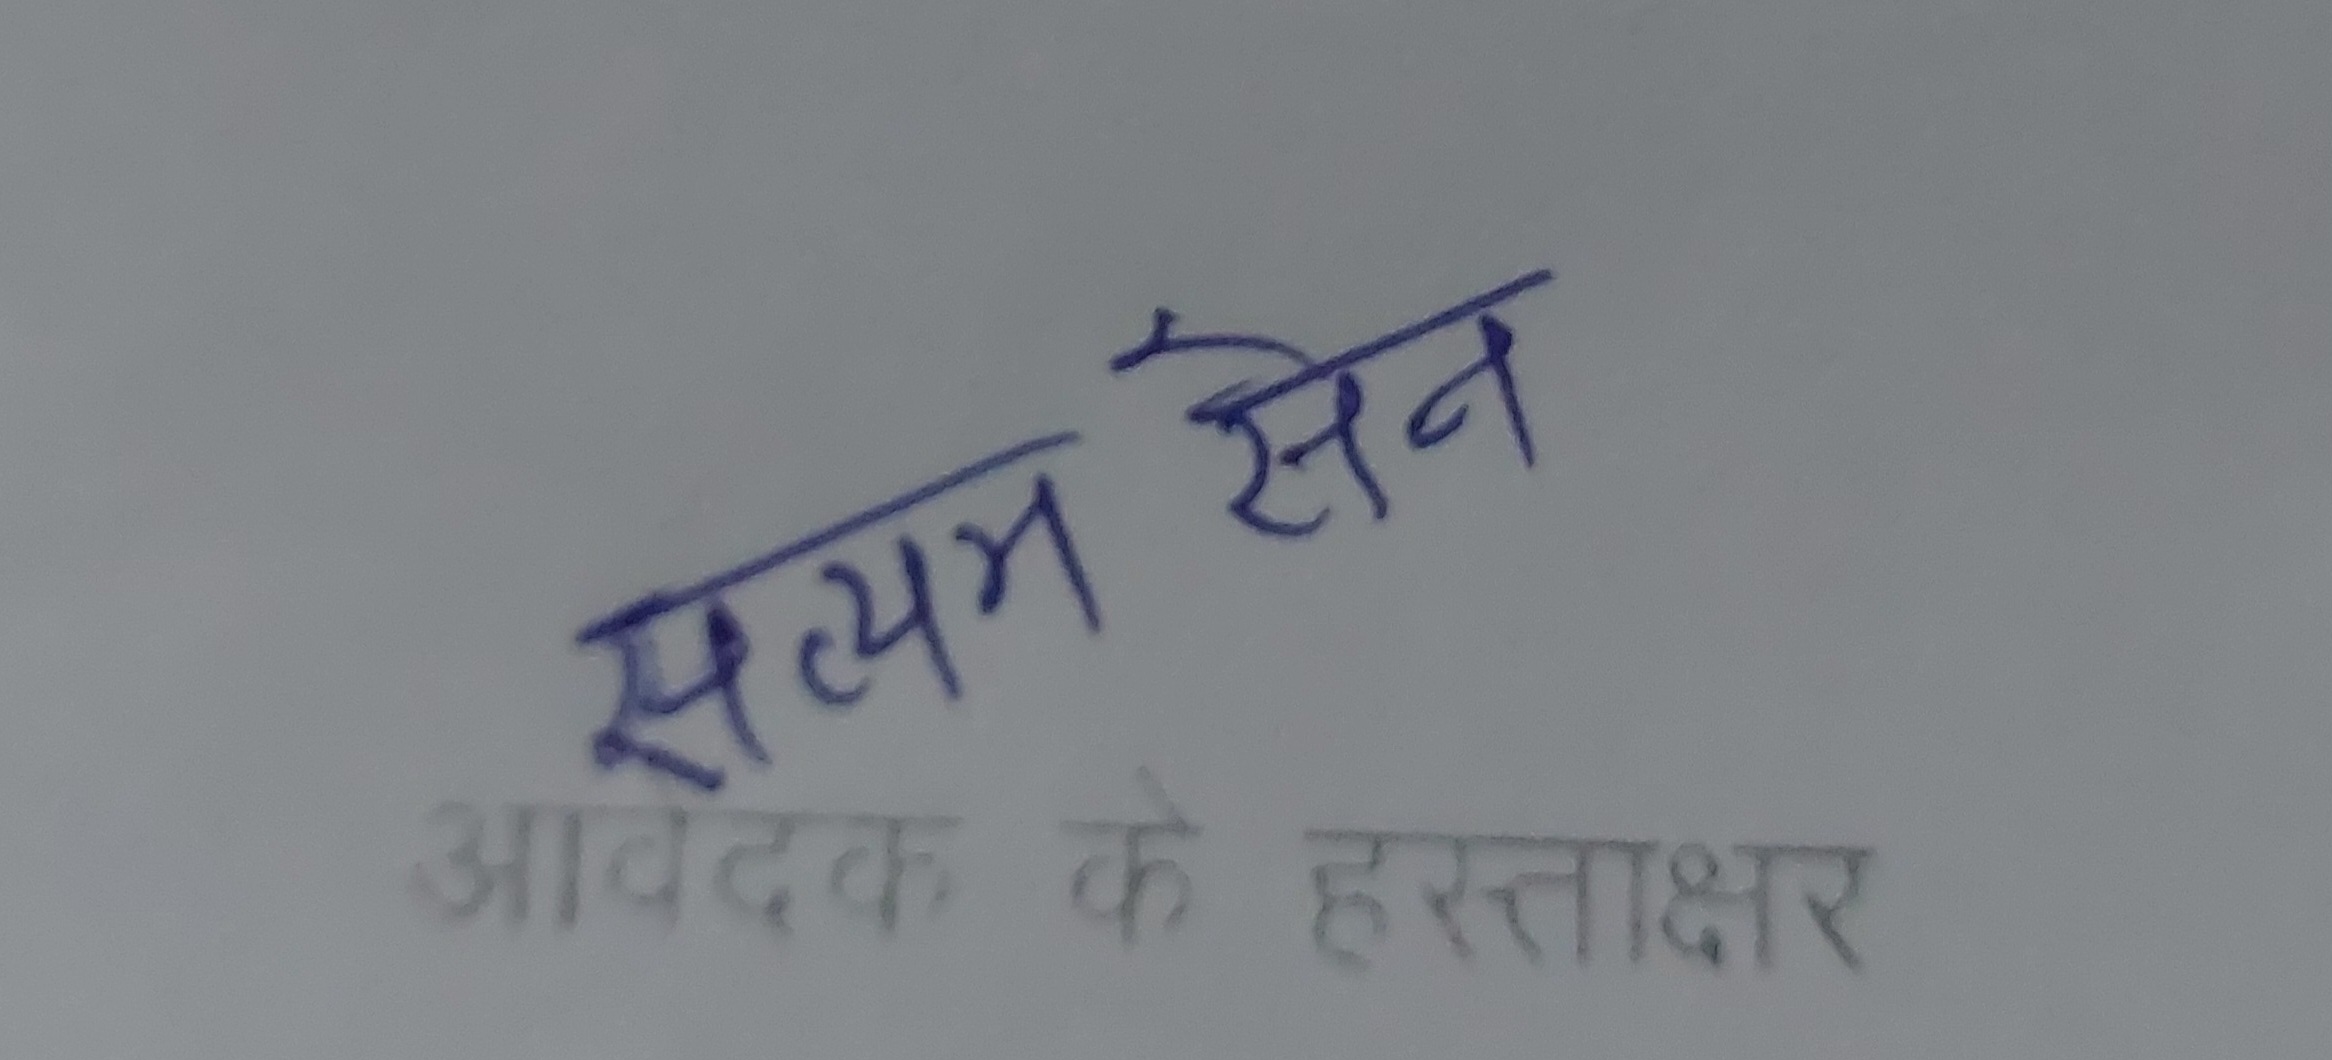 सत्यम सेन
आवेदक के हस्ताक्षर